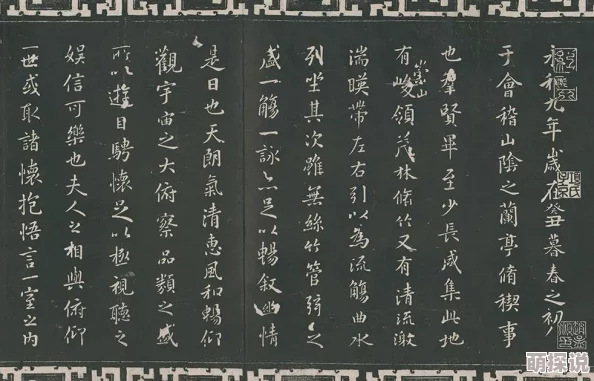 永和九年歲在癸丑暮春之初
于會稽山陰之蘭亭脩禊事
也羣賢畢至少長咸集此地
有崇山峻領茂林脩竹又有清流激
湍暎帶左右引以為流觴曲水
列坐其次雖無絲竹管弦之
盛一觴一詠亦足以暢敘幽情
是日也天朗氣清惠風和暢仰
觀宇宙之大俯察品類之盛
所以遊目騁懷足以極視聽之
娛信可樂也夫人之相與俯仰
一世或取諸懷抱悟言一室之內
萌探说